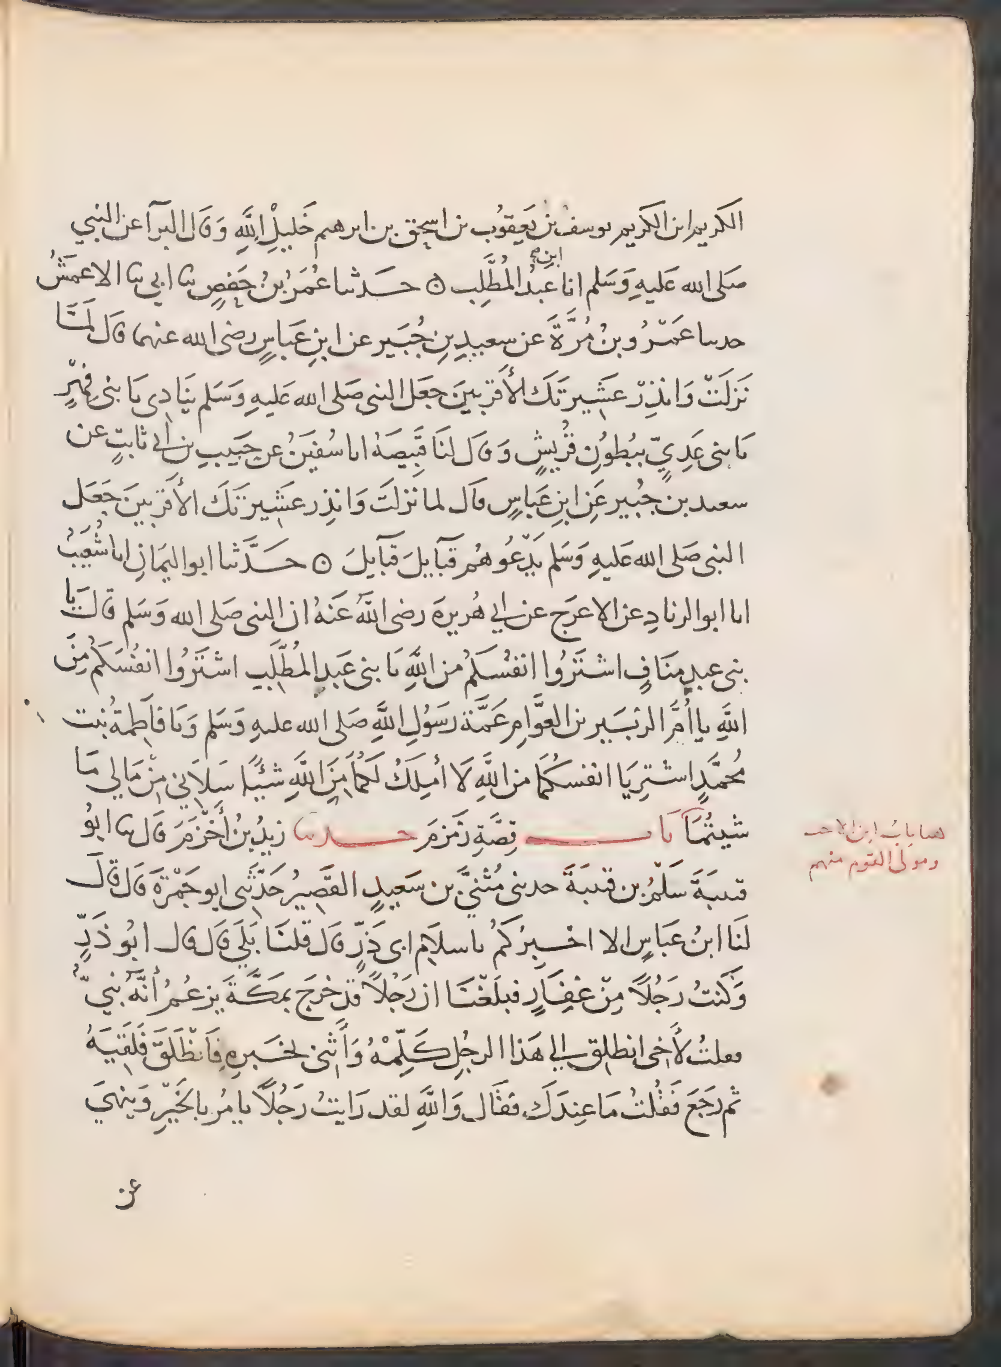 الكريم ابن الكريم يوسف بن يَعقوُب بن اسحق بن ابرهيم خَليْلِ اللَّهِ وَقال البرآ عن النبي
صَلى الله عَليهِ وَسَلم انا ابن عبدُ المُطَّلِب ۝ حَدثنا عُمَرُ بنُ حَفصٍ ثنا ابي ثنا الاعمَشُ
حدثنا عَمْرُو بنُ مُرَّةَ عن سعيدِ بنِ جُبَير عن ابنِ عَباسٍ رضى الله عنهما قال لمَّا
نَزَلَتْ وَانذِرْ عَشِيرتَكَ الأقرَبينَ جعَل النبى صَلى الله عَليهِ وَسَلم يُنَادِى يَا بنى فِهْرٍ
يا بنى عَدِيٍّ بِبُطُونِ قُرَيْشٍ وَقال لنَا قَبِيصَةُ انا سُفيَنُ عن حَبِيبِ بن ابي ثابتٍ عن
سعيد بن جُبير عَنِ ابنِ عَباسٍ قال لما نَزلَتَ وَانذِر عَشِيرتَكَ الأَقرَبينَ جَعَل
النبى صَلى الله عَليهِ وَسَلم يَدْعُوهُم قَبَآيلَ قَبآيلَ ۝ حَدَّثنا ابو اليَمانِ انا شُعَيبُ
انا ابو الزنادِ عن الاعرَج عن ابي هُريرةَ رضى اللَّهُ عَنهُ ان النبى صَلى الله وَسَلم قال يا
بنى عبدِ مَنَافٍ اشتَرُوا انفُسَكُم من اللَّهِ يَا بنى عَبدِ المُطَّلِبِ اشتَرُوا انفُسَكُم مِنَ
اللَّهِ يا اُمَّ الزُبَيرِ بن العَوَّامِ عَمَّة رَسُولِ اللَّهِ صَلى الله عليهِ وَسَلم وَيَا فاطِمةُ بنت
مُحمَّدٍ اشترِيَا انفسَكُما من اللَّهِ لَا أملِكُ لكُما مِنَ اللَّهِ شيئًا سَلاَنِي مِنْ مَالي مَا
شيتُمَا بَابُ قِصَّةِ زَمْزمَ حدثنا زيدُ بنُ أخْزَمَ قال ثنا ابوُ
قتيبَةَ سَلْمُ بن قتيبَةَ حدثنى مُثَنَّى بن سَعِيدٍ القَصِيرُ حَدَّثَنِى ابو جَمْرَةَ قال قال
لنَا ابنُ عَباسٍ الا اخبِرُكُم باسلَامِ ابى ذَرٍّ قال قُلنَا بَلَى قال قال ابُو ذَرٍّ
وَكُنتُ رَجُلاً مِنْ غِفَارٍ فبلَغْنَا ان رَجُلاً قد خرَج بمَكَّةَ يزعُمُ أنَّهُ نَبيٌّ
فقلتُ لأَخى انطلِق الي هَذَا الرجُلِ كَلِّمْهُ وَأْتنى بخَبَرِهِ فَانْطَلَقَ فَلَقِيَهُ
ثم رَجَعَ فَقُلتُ مَا عِندَكَ فقَال وَاللَّهِ لقد رَايتُ رَجُلاً يامُر بالخَيْرِ وَينهَى
عن
هنا باب ابن الاخت
ومولى القوم منهم